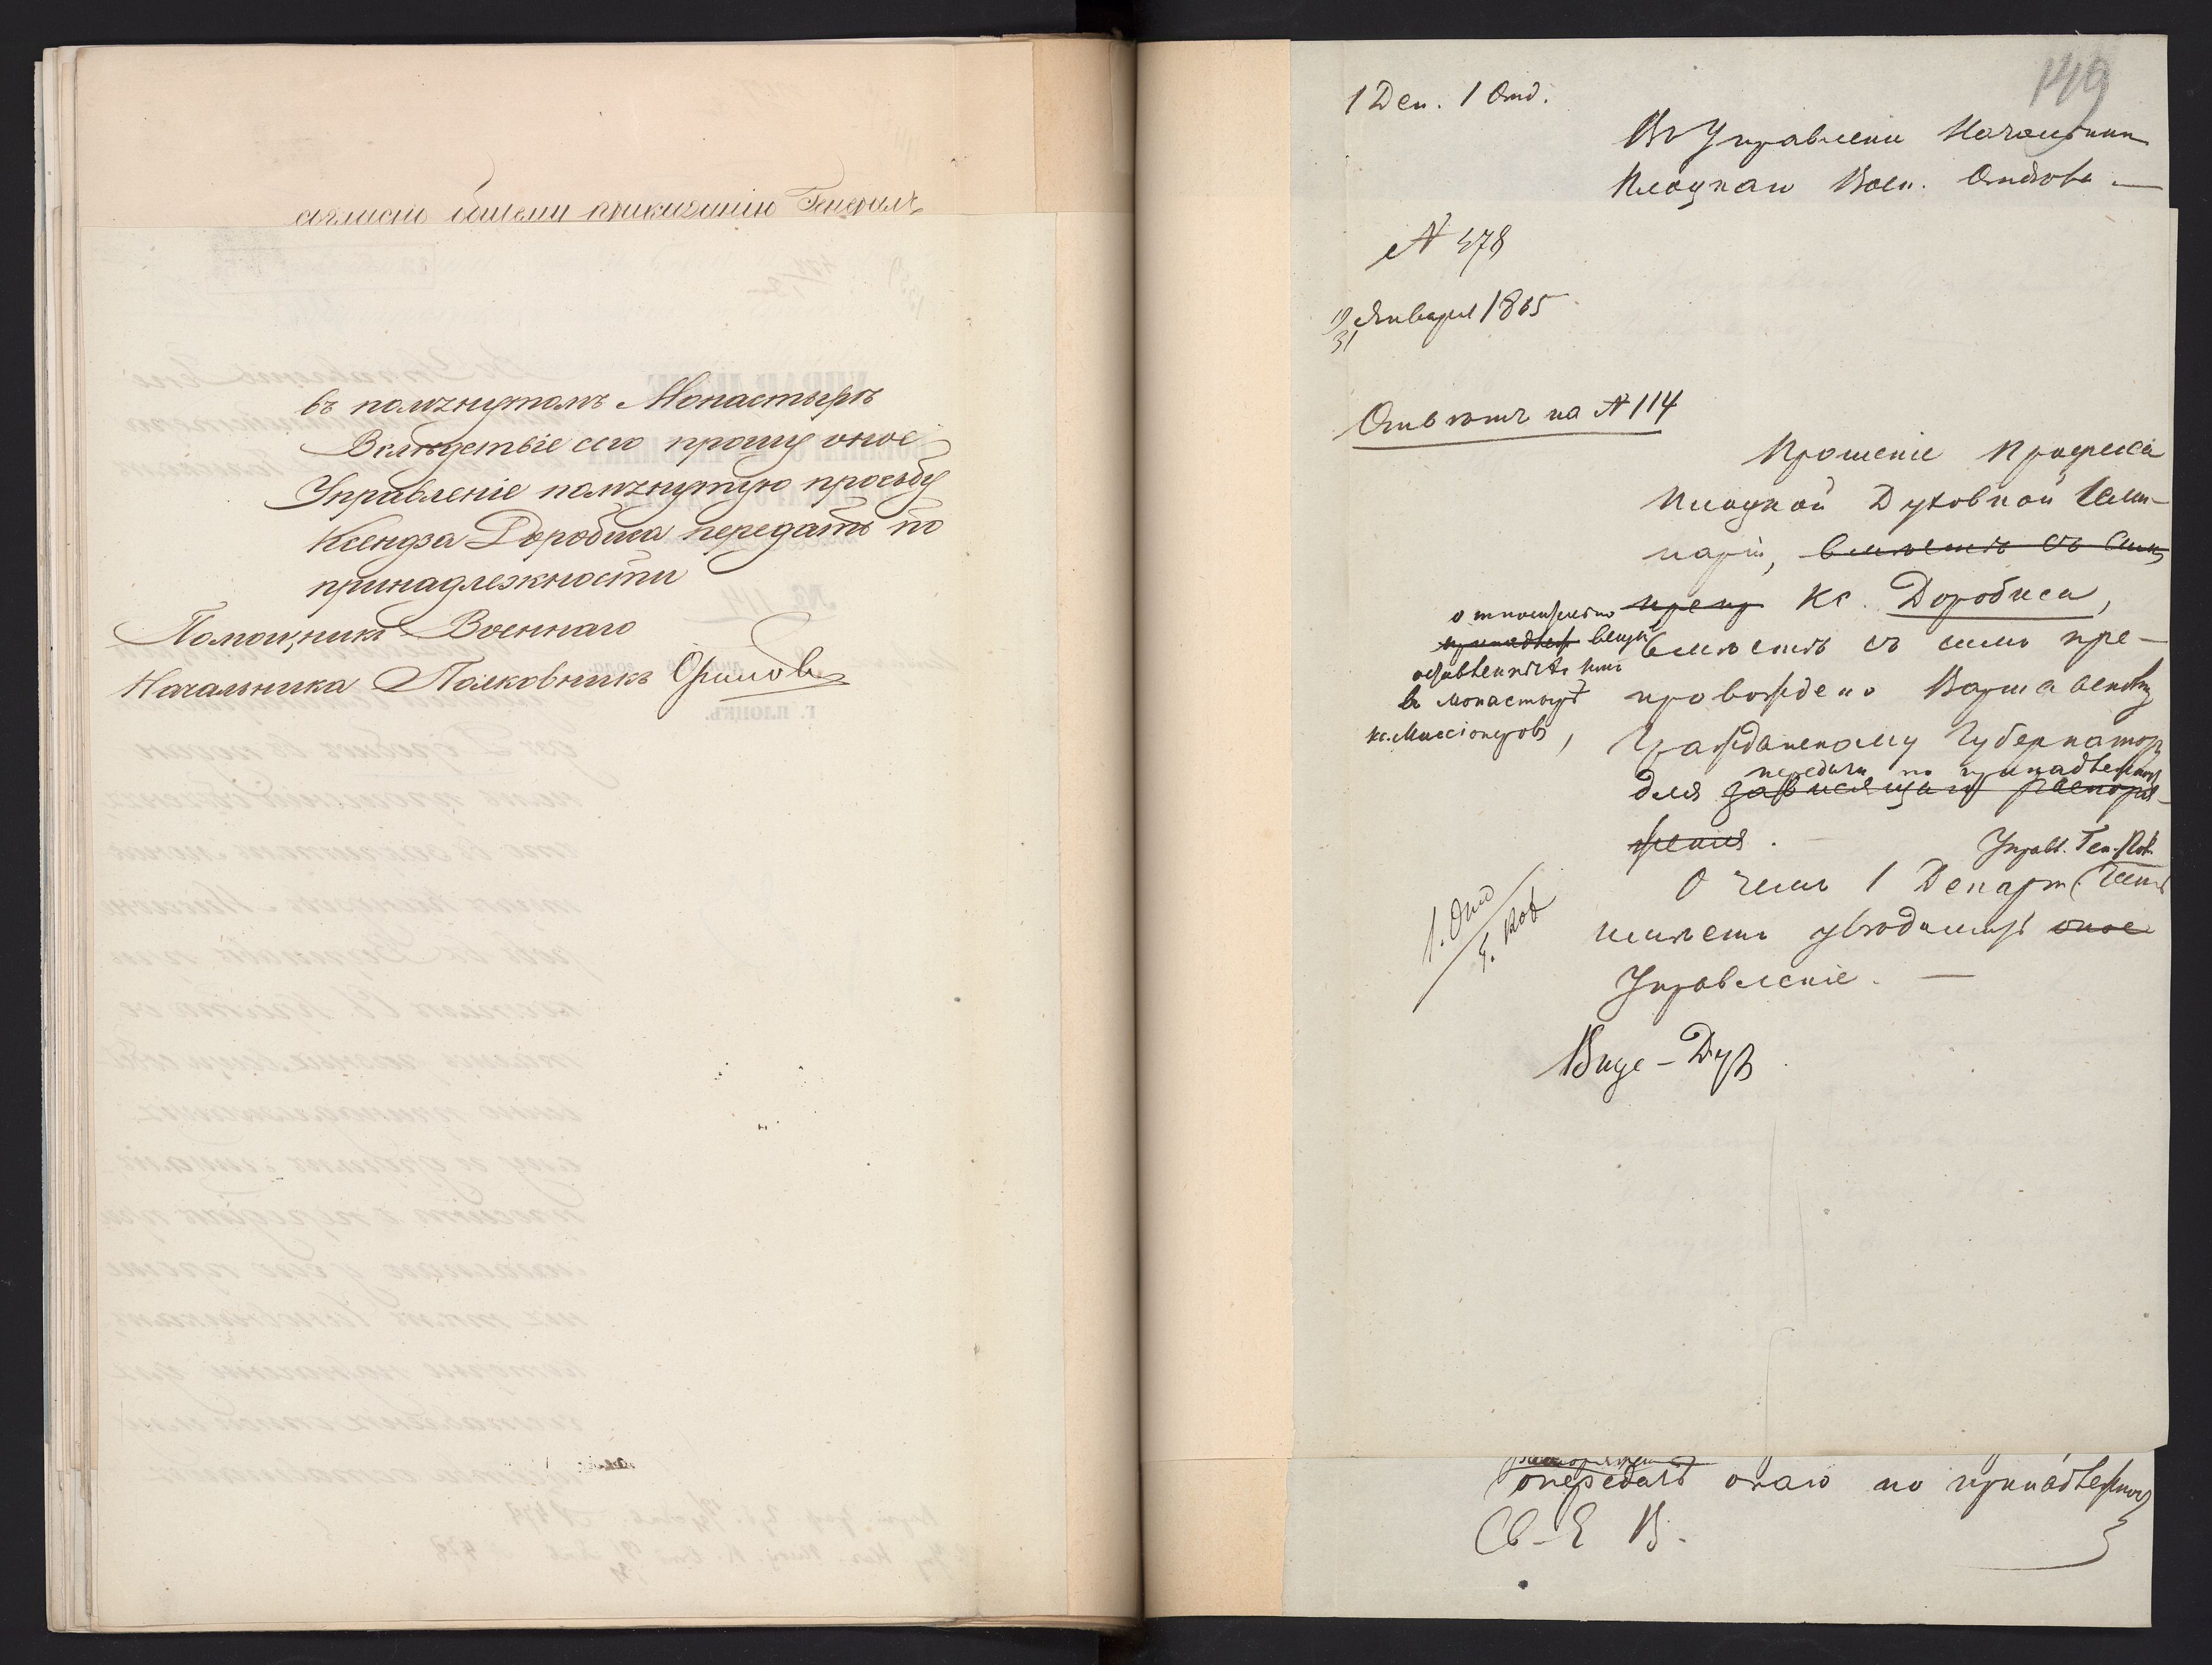 согласно общему приказанію Генералъ
въ помянутомъ Монастырѣ
Вслѣдствіе сего прошу оное
Управленіе помянутую просьбу
Ксендза Доробиса передать по
принадлежности
Помощникъ Военнаго
Начальника Полковникъ
149
1 Деп. 1 Отд.
Въ Управленіи Начальника
Плоцкаго Воен. Отдѣла —
№ 478
19/31 Января 1865
Отвѣтъ на № 114
Прошеніе Професса
Плоцкой Духовной Семи-
наріи, вмѣстѣ съ симъ
препр Кс. Доробиса,
относительно вещей
оставленныхъ имъ
въ Монастырѣ
кс. Миссіонеровъ,
вмѣстѣ съ симъ пре-
провождено Варшавскому
Гражданскому Губернатору
передачи по принадлежност
для зависящаго распоря-
женія.
Управ. Ген. Пол.
О чемъ 1 Департ.
имѣетъ увѣдомить оное
Управленіе. —
1. Отд
Вице-Ди
передачѣ онаго по принадлежност
Св. Е В.